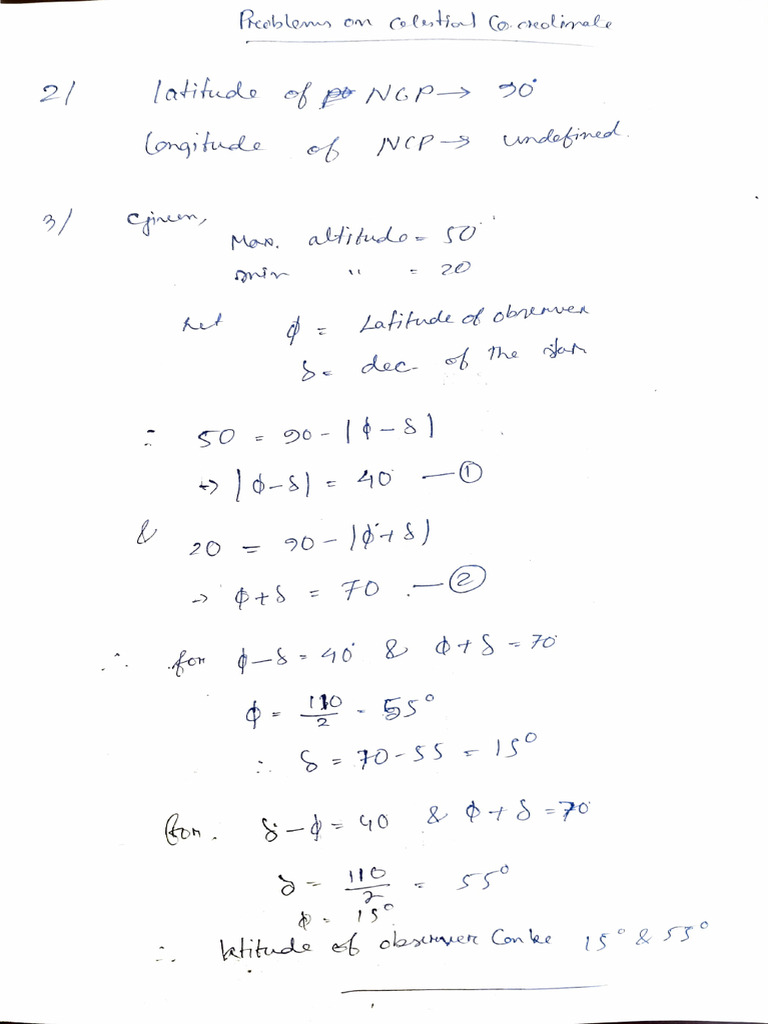 Problems on celestial Co-ordinate
2/ latitude of NGP → 90°
longitude of NCP → undefined.
3/ Given,
Max. altitude = 50°
min " = 20
Let φ = Latitude of observer
δ = dec. of the star
∴ 50 = 90 - |φ - δ|
→ |φ - δ| = 40 — ①
& 20 = 90 - |φ + δ|
→ φ + δ = 70 — ②
∴ for φ - δ = 40 & φ + δ = 70
φ = 110/2 = 55°
∴ δ = 70 - 55 = 15°
for. δ - φ = 40 & φ + δ = 70
δ = 110/2 = 55°
φ = 15°
∴ latitude of observer can be 15° & 55°